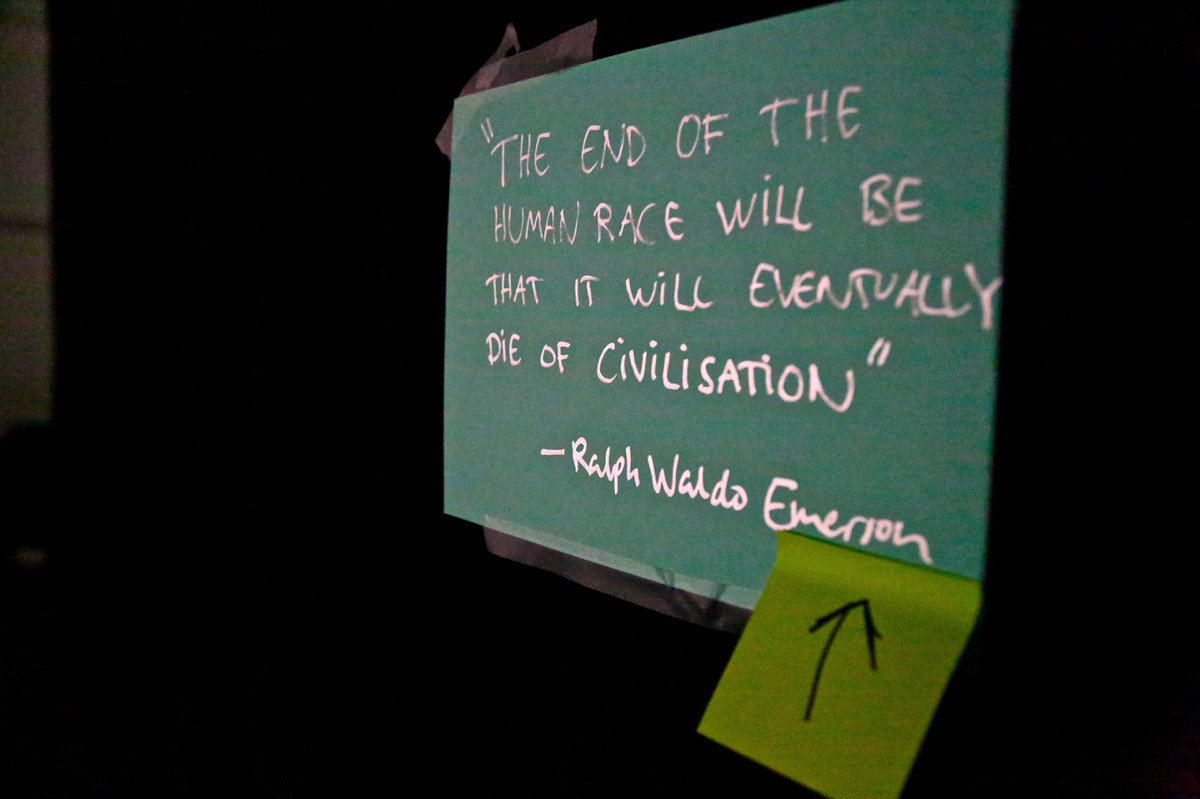 "THE END OF THE
HUMAN RACE WiLL BE
THAT IT WiLL EVENTUALLY
DiE OF CiViLiSATiON"
- Ralph Waldo Emerson